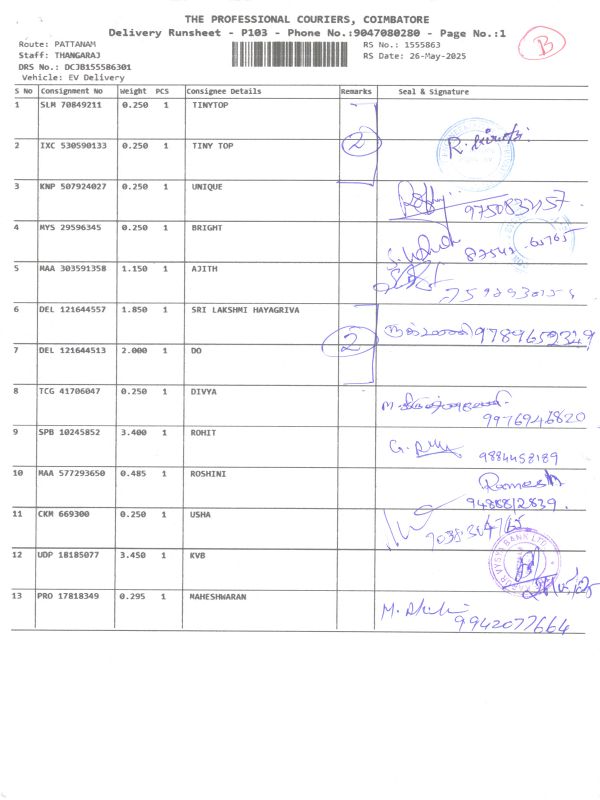 THE PROFESSIONAL COURIERS, COIMBATORE
Delivery Runsheet - P103 - Phone No.:9047080280 - Page No.:1
B
Route: PATTANAM
RS No.: 1555863
Staff: THANGARAJ
RS Date: 26-May-2025
DRS No.: DCJB1555B6301
Vehicle: EV Delivery
S No Consignment No Weight PCS Consignee Details Remarks Seal & Signature
1 SLM 70849211 0.250 1 TINYTOP
2
2 IXC 530590133 0.250 1 TINY TOP
R.
3 KNP 507924027 0.250 1 UNIQUE
4 MYS 29596345 0.250 1 BRIGHT
5 MAA 303591358 1.150 1 AJITH
6 DEL 121644557 1.850 1 SRI LAKSHMI HAYAGRIVA
9789659349
2
7 DEL 121644513 2.000 1 DO
8 TCG 41706047 0.250 1 DIVYA
9976946820
9 SPB 10245852 3.400 1 ROHIT
G.
9884458189
10 MAA 577293650 0.485 1 ROSHINI
Ramesh
9488812839.
11 CKM 669300 0.250 1 USHA
12 UDP 18185077 3.450 1 KVB
VYSYA BANK LTD
13 PRO 17818349 0.295 1 MAHESHWARAN
M.
9942077664